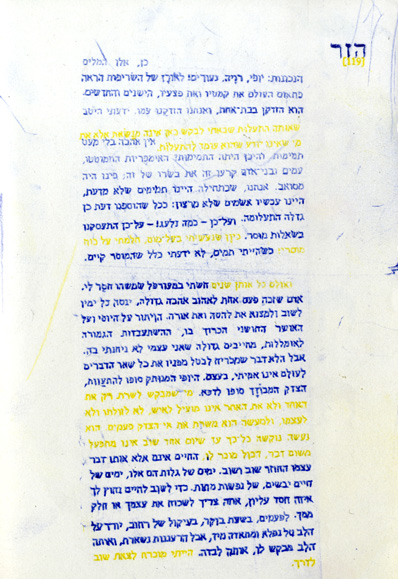 הזר
(119)
כן, אלו המלים
הנכונות: יופי, רויה, נעורים! לאורן של השריפות הראה
פתאום העולם את קמטיו ואת פצעיו, הישנים והחדשים.
הוא הזדקן בבת־אחת, ואנחנו הזדקנו עמו. ידעתי היטב
שאותה התעלות שבאתי לבקש כאן אינה מנשאת אלא את
מי שאינו יודע שהוא עומד להתעלות. אין אהבה בלי מעט
תמימות. להיכן היתה התמימות? האימפריות התמוטטו,
עמים ובני־אדם קרעו זה את בשרו של זה; פינו היה
מטונף. אנחנו, שבתחילה היינו תמימים שלא מדעת,
היינו עכשיו אשמים שלא מרצון: ככל שהוספנו דעת כן
גדלה התעלומה. ועל־כן – כמה נלעג! – על־כן התעסקנו
בשאלות מוסר.
כשהייתי תמים, לא ידעתי כלל שהמוסר קיים.
ואולם כל אותן שנים חשתי במעורפל שמשהו חסר לי.
אדם שזכה פעם אחת לאהוב אהבה גדולה, ינסה כל ימיו
לשוב ולמצוא את הלהט ואת אורה. הויתור על היופי ועל
האושר החושני הכרוך בו, ההשתעבדות הגמורה
לאומללות, מחייבים גדולה שאני עצמי לא ניחנתי בה.
אבל הלא דבר שמכריח לבטל מפניו את כל שאר הדברים
לעולם אינו אמיתי, בעצם. היופי המנותק סופו להתעוות,
הצדק המבודד סופו לדכא. מי שמבקש לשרת רק את
האחד ולא את האחר אינו מועיל לאיש, לא לזולתו ולא
לעצמו, ולמעשה הוא משרת את אי הצדק פעמים. הוא
נעשה נוקשה כל־כך עד שיום אחד שוב אינו מתפעל
משום דבר, הכול מוכר לו, החיים אינם אלא אותו דבר
עצמו החוזר שוב ושוב. ימים של גלות הם אלו, ימים של
חיים יבשים, של נפשות מתות. כדי לשוב לחיים נחוץ לך
איזה חסד עליון, אתה צריך לשכוח את עצמך או חלק
ממך. לפעמים, בשעת בוקר, בעיקול של רחוב, יורד על
הלב טל נפלא ומתאדה מיד, אבל הרעננות נשארת, ואותה
הלב מבקש לו, אותה לבדה. הייתי מוכרח לצאת שוב
לדרך.